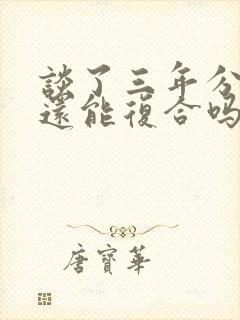 談了三年分
還能復合嗎
唐寶華